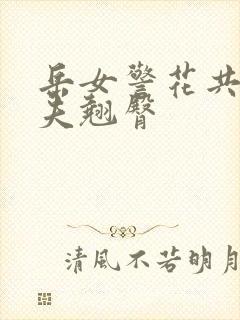 岳女警花共
夫翘臀
清風不若明月